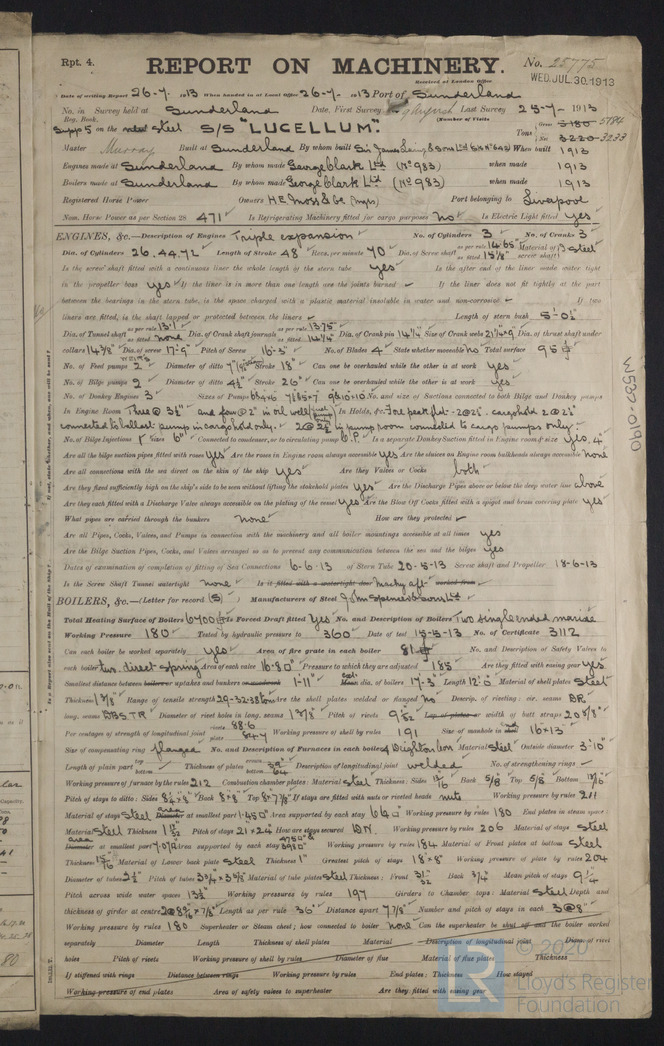 Rpt. 4.
REPORT ON MACHINERY.
No. 25775
Received at London Office WED. JUL. 30. 1913
Date of writing Report 26-7-1913 When handed in at Local Office 26-7-1913 Port of Sunderland
No. in Survey held at Sunderland Date, First Survey Last Survey 25-7-1913
Reg. Book. (Number of Visits
on the steel S/S "LUCELLUM". Tons Gross 5180 5784 Net 3220 3233
Master Murray Built at Sunderland By whom built Sir James Laing & Sons Ltd When built 1913
Engines made at Sunderland By whom made George Clark Ltd (No 983) when made 1913
Boilers made at Sunderland By whom made George Clark Ltd (No 983) when made 1913
Registered Horse Power Owners H.E. Moss & Co Port belonging to Liverpool
Nom. Horse Power as per Section 28 471 Is Refrigerating Machinery fitted for cargo purposes No Is Electric Light fitted Yes
ENGINES, &c.—Description of Engines Triple expansion No. of Cylinders 3 No. of Cranks 3
Dia. of Cylinders 26.44.72 Length of Stroke 48 Revs. per minute 70 Dia. of Screw shaft as per rule 14.65 as fitted 15 1/8" Material of screw shaft Steel
Is the screw shaft fitted with a continuous liner the whole length of the stern tube yes Is the after end of the liner made water tight
in the propeller boss yes If the liner is in more than one length are the joints burned If the liner does not fit tightly at the part
between the bearings in the stern tube, is the space charged with a plastic material insoluble in water and non-corrosive If two
liners are fitted, is the shaft lapped or protected between the liners Length of stern bush 5'-0½"
Dia. of Tunnel shaft as per rule 13.1 as fitted none Dia. of Crank shaft journals as per rule 13.75 as fitted 14¼" Dia. of Crank pin 14¼" Size of Crank webs Dia. of thrust shaft under
collars 14 3/8" Dia. of screw 17'-9" Pitch of Screw No. of Blades 4 State whether moveable no Total surface 95
No. of Feed pumps 2 Diameter of ditto Stroke 18" Can one be overhauled while the other is at work yes
No. of Bilge pumps 2 Diameter of ditto 4½ Stroke 26" Can one be overhauled while the other is at work yes
No. of Donkey Engines 3 Sizes of Pumps No. and size of Suctions connected to both Bilge and Donkey pumps
In Engine Room Three @ 3½" and four @ 2" in oil well In Holds, &c. Fore peak
connected to ballast pump in cargo hold only. in pump room connected to cargo pumps only
No. of Bilge Injections 1 sizes 6" Connected to condenser, or to circulating pump C.P. Is a separate Donkey Suction fitted in Engine room & size Yes. 4"
Are all the bilge suction pipes fitted with roses yes Are the roses in Engine room always accessible yes Are the sluices on Engine room bulkheads always accessible none
Are all connections with the sea direct on the skin of the ship yes Are they Valves or Cocks both
Are they fixed sufficiently high on the ship's side to be seen without lifting the stokehold plates yes Are the Discharge Pipes above or below the deep water line above
Are they each fitted with a Discharge Valve always accessible on the plating of the vessel yes Are the Blow Off Cocks fitted with a spigot and brass covering plate yes
What pipes are carried through the bunkers none How are they protected
Are all Pipes, Cocks, Valves, and Pumps in connection with the machinery and all boiler mountings accessible at all times yes
Are the Bilge Suction Pipes, Cocks, and Valves arranged so as to prevent any communication between the sea and the bilges yes
Dates of examination of completion of fitting of Sea Connections 6-6-13 of Stern Tube 20-5-13 Screw shaft and Propeller 18-6-13
Is the Screw Shaft Tunnel watertight none Is it fitted with a watertight door Machy aft worked from
BOILERS, &c.—(Letter for record (S)) Manufacturers of Steel John Spencer & Sons Ltd
Total Heating Surface of Boilers 6700 Is Forced Draft fitted yes No. and Description of Boilers Two single ended marine
Working Pressure 180 Tested by hydraulic pressure to 360 Date of test 15-5-13 No. of Certificate 3112
Can each boiler be worked separately yes Area of fire grate in each boiler 81 No. and Description of Safety Valves to
each boiler two direct-spring Area of each valve 16.80 Pressure to which they are adjusted 185 Are they fitted with easing gear yes
Smallest distance between boilers or uptakes and bunkers or woodwork 1'-11" Mean dia. of boilers 17'-3" Length 12'-0" Material of shell plates Steel
Thickness 1 3/8" Range of tensile strength Are the shell plates welded or flanged no Descrip. of riveting: cir. seams DR
long. seams DBS TR Diameter of rivet holes in long. seams 1 3/8" Pitch of rivets Lap of plates or width of butt straps 20 5/8"
Per centages of strength of longitudinal joint rivets 88.6 plate Working pressure of shell by rules 191 Size of manhole in shell 16"×13"
Size of compensating ring flanged No. and Description of Furnaces in each boiler 4 Deighton Cor Material Steel Outside diameter 3'-10"
Length of plain part top bottom Thickness of plates crown bottom 39/64 Description of longitudinal joint welded No. of strengthening rings
Working pressure of furnace by the rules 212 Combustion chamber plates: Material Steel Thickness: Sides Back 5/8" Top 5/8" Bottom
Pitch of stays to ditto: Sides Back 8"×8" Top 8"×7 7/8" If stays are fitted with nuts or riveted heads nuts Working pressure by rules 211
Material of stays Steel area Diameter at smallest part 1.45 Area supported by each stay 64 Working pressure by rules 180 End plates in steam space:
Material Steel Thickness Pitch of stays 21"×21¼ How are stays secured DN. Working pressure by rules 206 Material of stays Steel
area Diameter at smallest part Area supported by each stay Working pressure by rules 184 Material of Front plates at bottom Steel
Thickness 15/16 Material of Lower back plate Steel Thickness 1" Greatest pitch of stays 18"×8" Working pressure of plate by rules 204
Diameter of tubes 2½ Pitch of tubes 3¾"×3 5/8" Material of tube plates Steel Thickness: Front 31/32 Back 3/4" Mean pitch of stays 9¼
Pitch across wide water spaces 13½ Working pressures by rules 197 Girders to Chamber tops: Material Steel Depth and
thickness of girder at centre Length as per rule 36" Distance apart 7 7/8" Number and pitch of stays in each 3@8"
Working pressure by rules 180 Superheater or Steam chest; how connected to boiler none Can the superheater be shut off and the boiler worked
separately Diameter Length Thickness of shell plates Material Description of longitudinal joint Diam. of rivet
holes Pitch of rivets Working pressure of shell by rules Diameter of flue Material of flue plates Thickness
If stiffened with rings Distance between rings Working pressure by rules End plates: Thickness How stayed
Working pressure of end plates Area of safety valves to superheater Are they fitted with easing gear
W530-0190
© 2020
Lloyd's Register
Foundation
LR